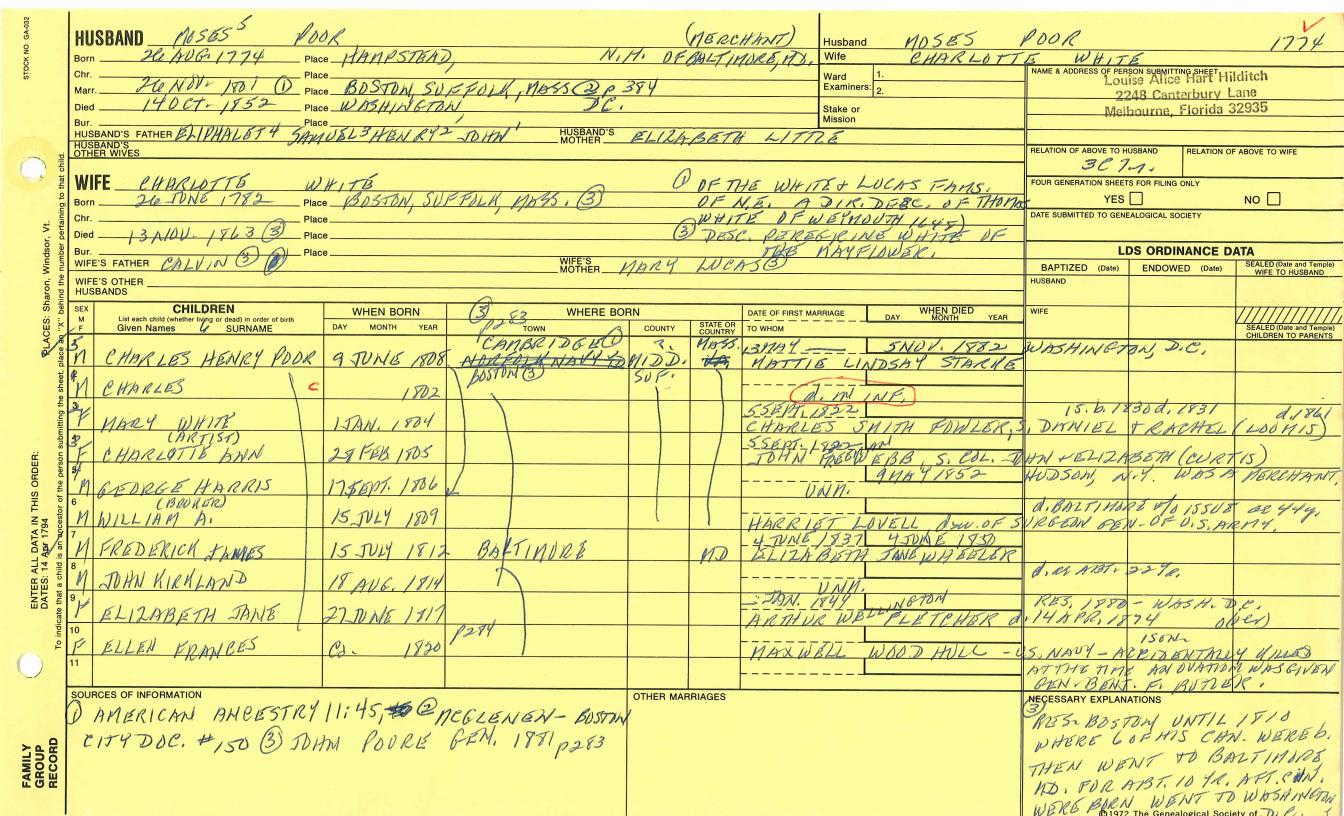 STOCK NO. GA-032
HUSBAND MOSES 5 POOR (MERCHANT)
Born 26 AUG. 1774 Place HAMPSTEAD, N.H. OF BALTIMORE, MD.
Chr. Place
Marr. 26 NOV. 1801 ① Place BOSTON, SUFFOLK, MASS ② p 384
Died 14 OCT. 1852 Place WASHINGTON D.C.
Bur. Place
HUSBAND'S FATHER ELIPHALET 4 SAMUEL 3 HENRY 2 JOHN 1 HUSBAND'S MOTHER ELIZABETH LITTLE
HUSBAND'S OTHER WIVES
Husband MOSES POOR 1774
Wife CHARLOTTE WHITE
Ward Examiners: 1. 2.
Stake or Mission
NAME & ADDRESS OF PERSON SUBMITTING SHEET
Louise Alice Hart Hilditch
2248 Canterbury Lane
Melbourne, Florida 32935
RELATION OF ABOVE TO HUSBAND RELATION OF ABOVE TO WIFE
3C 7r.
FOUR GENERATION SHEETS FOR FILING ONLY
YES NO
DATE SUBMITTED TO GENEALOGICAL SOCIETY
WIFE CHARLOTTE WHITE
Born 26 JUNE 1782 Place BOSTON, SUFFOLK, MASS. ③
Chr. Place
Died 13 NOV. 1863 ③ Place
Bur. Place
WIFE'S FATHER CALVIN ③ WIFE'S MOTHER MARY LUCAS ③
WIFE'S OTHER HUSBANDS
① OF THE WHITE & LUCAS FAMS.
OF N.E. A DIR. DESC. OF THOMAS
WHITE OF WEYMOUTH (1645)
③ DESC. PEREGRINE WHITE OF
THE MAYFLOWER.
LDS ORDINANCE DATA
BAPTIZED (Date) ENDOWED (Date) SEALED (Date and Temple) WIFE TO HUSBAND
HUSBAND
WIFE
SEALED (Date and Temple) CHILDREN TO PARENTS
SEX M F
CHILDREN
List each child (whether living or dead) in order of birth
Given Names 6 SURNAME
WHEN BORN
DAY MONTH YEAR
WHERE BORN
TOWN COUNTY STATE OR COUNTRY
③ p283
DATE OF FIRST MARRIAGE
TO WHOM
WHEN DIED
DAY MONTH YEAR
5 M CHARLES HENRY POOR 9 JUNE 1808 CAMBRIDGE ① NORFOLK NAVY YD MIDD. MASS. 13 MAY 5 NOV. 1882 WASHINGTON, D.C.
MATTIE LINDSAY STARKE
M CHARLES C 1802 BOSTON ③ SUF. d. in INF.
F MARY WHITE 1 JAN. 1804 5 SEPT. 1822 1 s. b. 1830 d. 1831 d. 1861
CHARLES SMITH FOWLER, S. DANIEL & RACHEL (LOOMIS)
(ARTIST)
F CHARLOTTE ANN 29 FEB 1805 5 SEPT.
JOHN WEBB, S. COL. JOHN & ELIZABETH (CURTIS)
M GEORGE HARRIS 17 SEPT. 1806 9 MAY 1852 HUDSON, N.Y. WAS A MERCHANT.
UNM.
6 M WILLIAM A. 15 JULY 1809 d. BALTIMORE w/o ISSUE ae 44y.
HARRIET LOVELL, dau. OF SURGEON GEN. OF U.S. ARMY.
7 M FREDERICK JAMES 15 JULY 1812 BALTIMORE MD 4 JUNE 1837 4 JUNE 1850
ELIZABETH JANE WHEELER
8 M JOHN KIRKLAND 18 AUG. 1814 UNM. d. ae ABT. 22 yr.
9 F ELIZABETH JANE 27 JUNE 1817 JAN. 1844 RES. 1880 - WASH. D.C.
ARTHUR WELLINGTON FLETCHER d. 14 APR. 1874 (over)
10 F ELLEN FRANCES Ca. 1820 p284 1 SON.
MAXWELL WOODHULL - U.S. NAVY - ACCIDENTALLY KILLED
AT THE TIME AN OVATION WAS GIVEN
GEN. BENJ. F. BUTLER.
11
SOURCES OF INFORMATION
① AMERICAN ANCESTRY 11:45, ② MCGLENEN - BOSTON
CITY DOC. #150 ③ JOHN POORE GEN. 1881 p283
OTHER MARRIAGES
NECESSARY EXPLANATIONS
③ RES. BOSTON UNTIL 1810
WHERE 6 OF HIS CHN. WERE b.
THEN WENT TO BALTIMORE
MD. FOR ABT. 10 YR. AFT. CHN.
WERE BORN WENT TO WASHINGTON
D.C.
©1972 The Genealogical Society of
ENTER ALL DATA IN THIS ORDER:
DATES: 14 Apr 1794
PLACES: Sharon, Windsor, Vt.
To indicate that a child is an ancestor of the person submitting the sheet, place an "X" behind the number pertaining to that child.
FAMILY GROUP RECORD